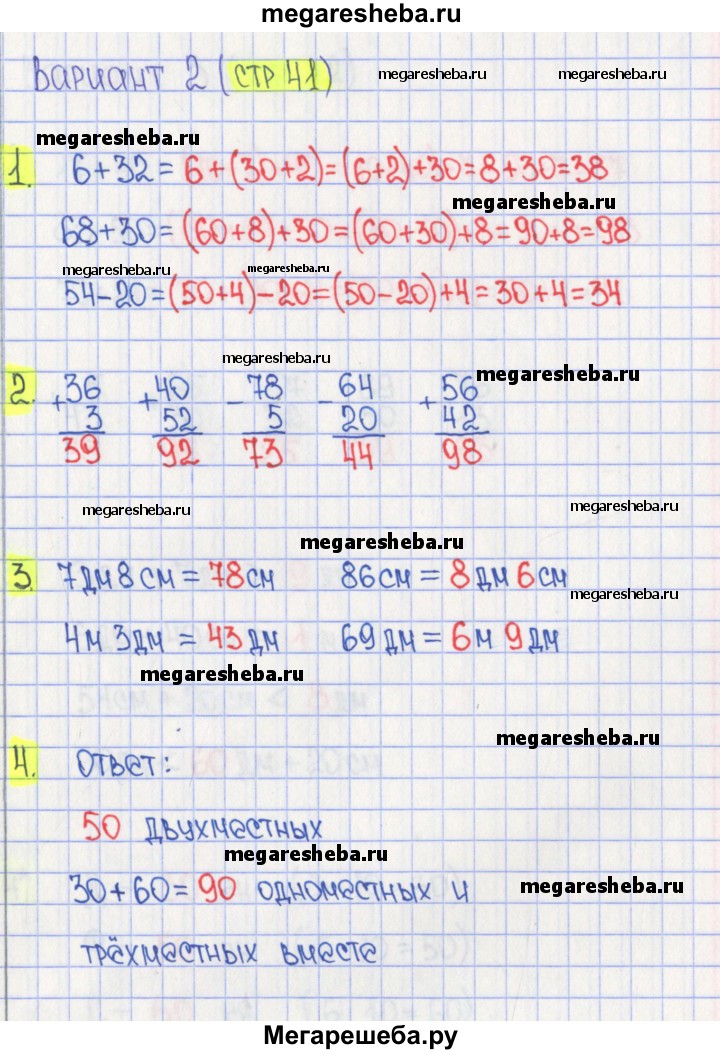 megaresheba.ru
Вариант 2 (стр 41)
megaresheba.ru megaresheba.ru
megaresheba.ru
1. 6+32 = 6+(30+2)=(6+2)+30=8+30=38
megaresheba.ru
68+30=(60+8)+30=(60+30)+8=90+8=98
megaresheba.ru megaresheba.ru
54-20=(50+4)-20=(50-20)+4=30+4=34
megaresheba.ru megaresheba.ru
2. +36 +40 -78 -64 +56
3 52 5 20 42
39 92 73 44 98
megaresheba.ru megaresheba.ru
megaresheba.ru
3. 7дм 8см = 78см 86см = 8дм 6см
megaresheba.ru
4м 3дм = 43дм 69дм = 6м 9дм
megaresheba.ru
megaresheba.ru
4. Ответ:
50 двухместных
megaresheba.ru
30+60=90 одноместных и
megaresheba.ru
трёхместных вместе
Мегарешеба.ру